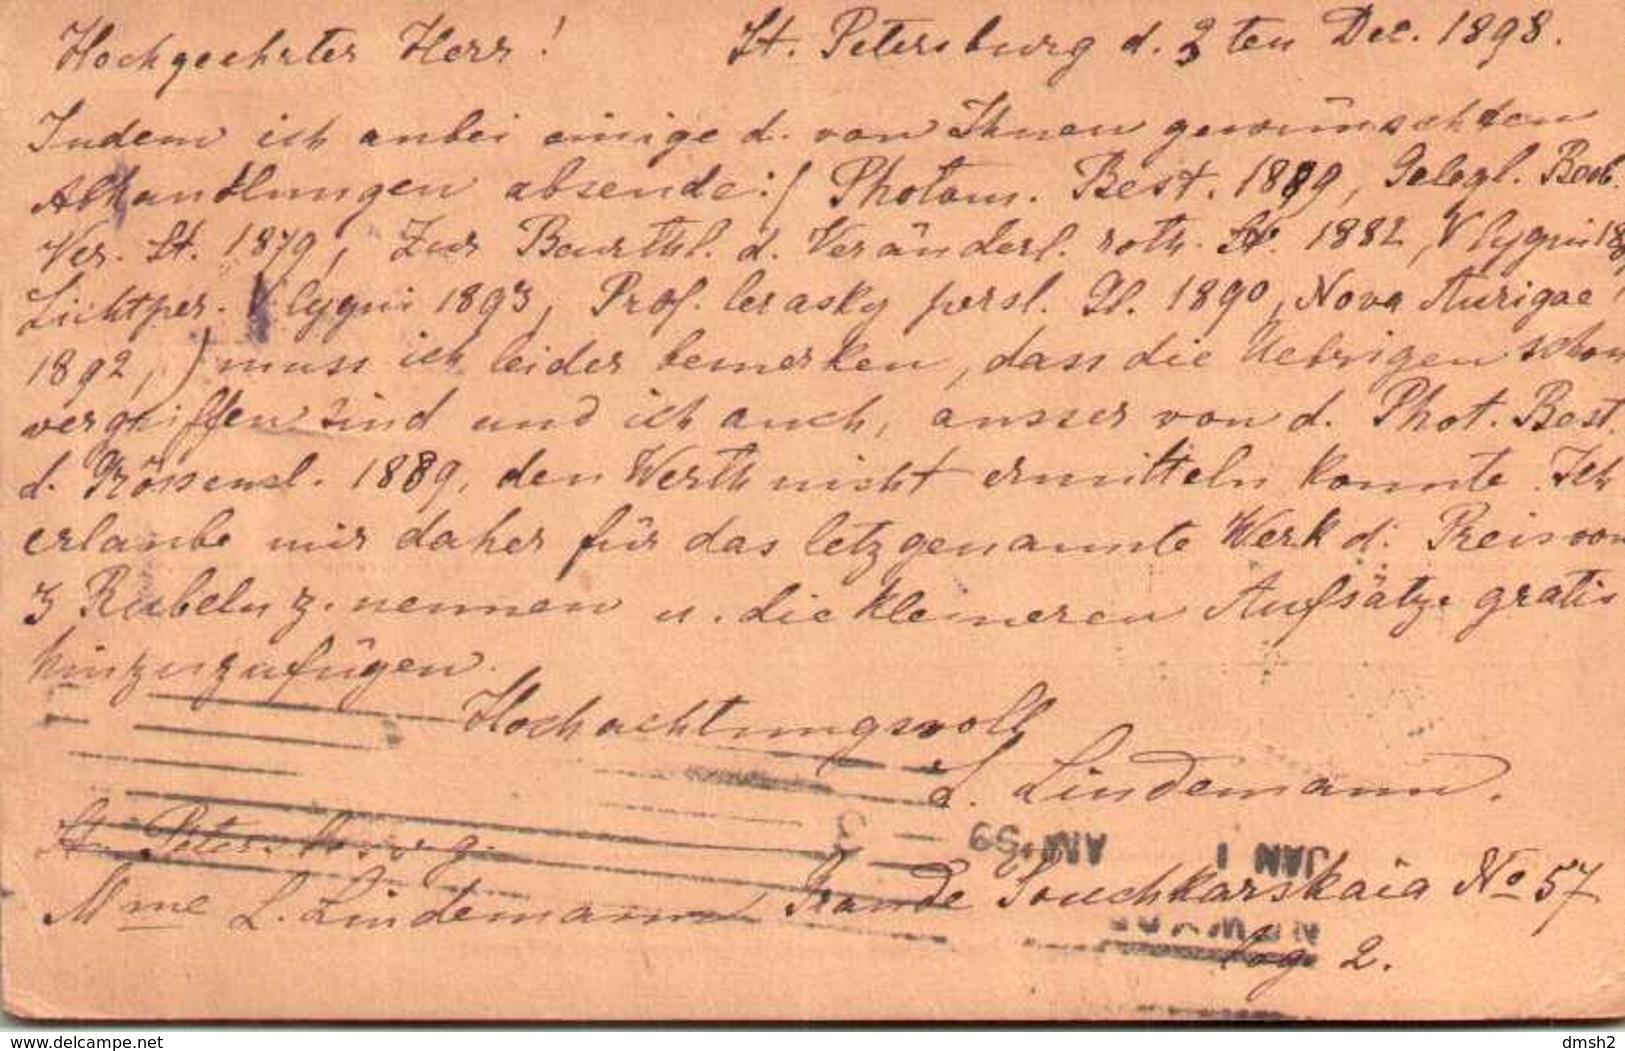 Hochgeehrter Herr! St. Petersburg d. 3 ten Dec. 1898.
Indem ich anbei einige d. von Ihnen gewünschten
Abhandlungen absende:( Photom. Best. 1889, Gelegl. Beob.
Ver. St. 1879, Zur Beurthl. d. Veränderl. roth. St. 1882, V Cygni 18
Lichtper. V Cygni 1893, Prof. Cerasky persl. Gl. 1890, Nova Aurigae
1892,) muss ich leider bemerken, dass die Uebrigen schon
vergriffen sind und ich auch, ausser von d. Phot. Best.
d. Grössencl. 1889, den Werth nicht ermitteln konnte. Ich
erlaube mir daher für das letzgenannte Werk d. Preis von
3 Rubeln z. nennen u. die kleineren Aufsätze gratis
hinzuzufügen.
Hochachtungsvoll
L. Lindemann.
St. Petersburg.
JAN 1 AM '99
Mme L. Lindemann Grande Souchkarskaia No 57
log 2.
delcampe.net dmsh2